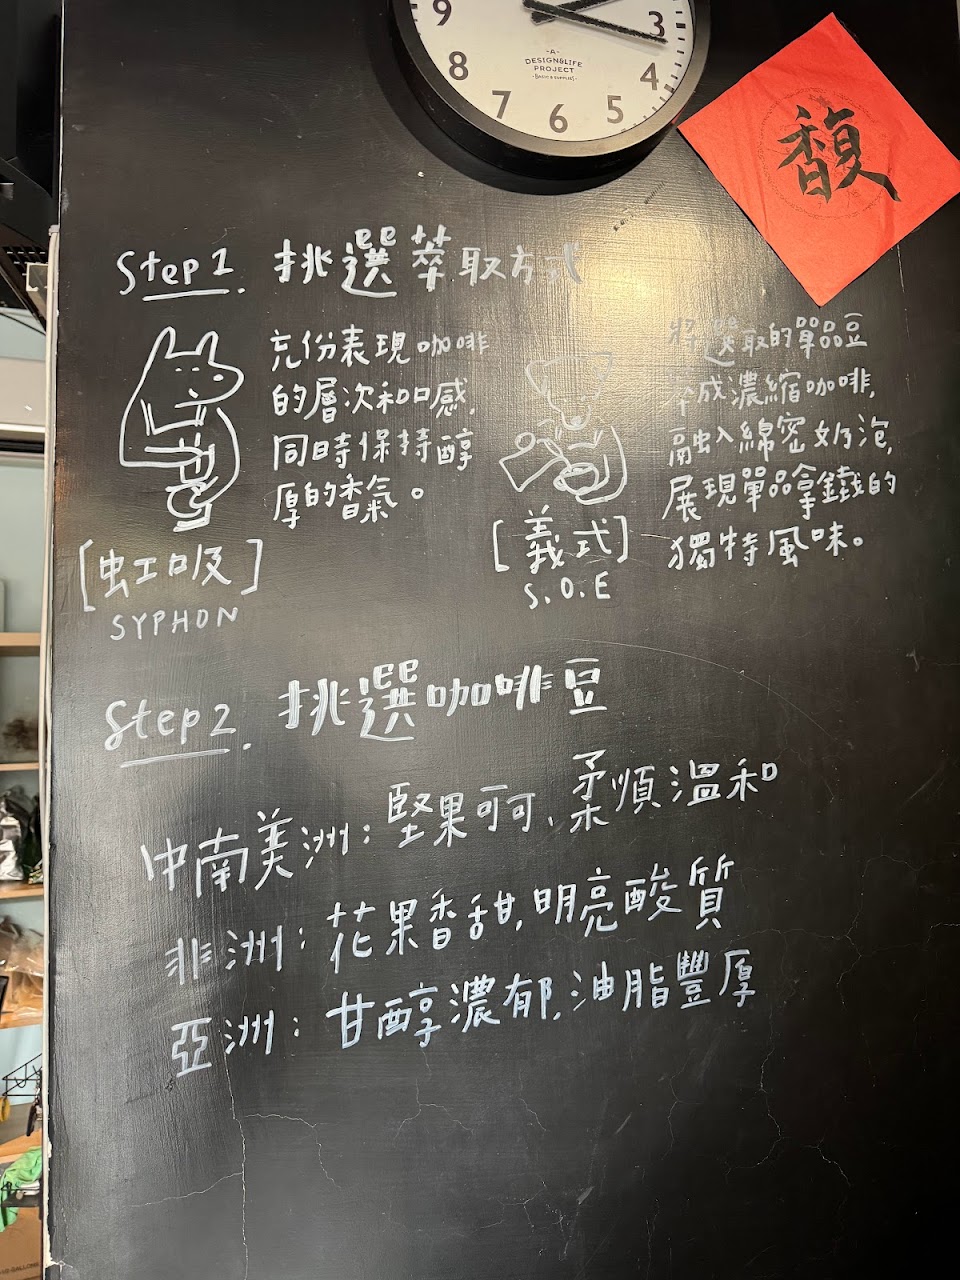 9 3
8 4
7 6 5
-A-
DESIGN&LIFE
PROJECT
馥
Step1. 挑選萃取方式
充份表現咖啡
的層次和口感,
同時保持醇
厚的香氣。
[虹吸]
SYPHON
將選取的單品豆
成濃縮咖啡,
融入綿密奶泡,
展現單品拿鐵的
獨特風味。
[義式]
S.O.E
Step2. 挑選咖啡豆
中南美洲:堅果可可、柔順溫和
非洲:花果香甜,明亮酸質
亞洲:甘醇濃郁,油脂豐厚